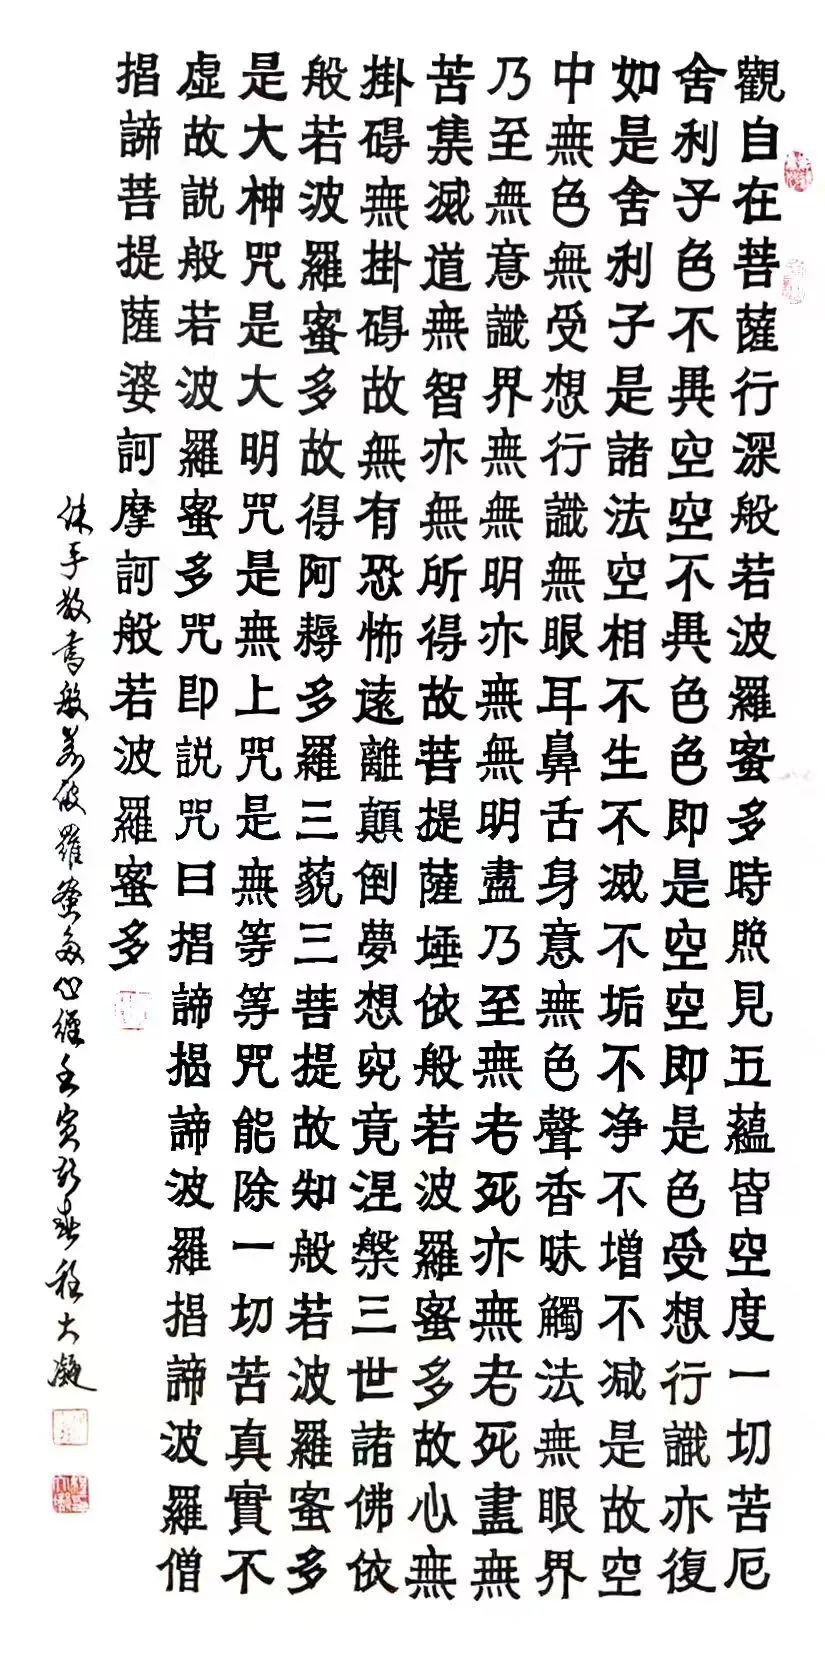 觀自在菩薩行深般若波羅蜜多時照見五蘊皆空度一切苦厄
舍利子色不異空空不異色色即是空空即是色受想行識亦復
如是舍利子是諸法空相不生不滅不垢不净不增不减是故空
中無色無受想行識無眼耳鼻舌身意無色聲香味觸法無眼界
乃至無意識界無無明亦無無明盡乃至無老死亦無老死盡無
苦集滅道無智亦無所得故菩提薩埵依般若波羅蜜多故心無
掛碍無掛碍故無有恐怖遠離顛倒夢想究竟涅槃三世諸佛依
般若波羅蜜多故得阿耨多羅三藐三菩提故知般若波羅蜜多
是大神咒是大明咒是無上咒是無等等咒能除一切苦真實不
虚故説般若波羅蜜多咒即説咒曰揭諦揭諦波羅揭諦波羅僧
揭諦菩提薩婆訶摩訶般若波羅蜜多
沐手敬書般若波羅蜜多心經壬寅新春程大凝